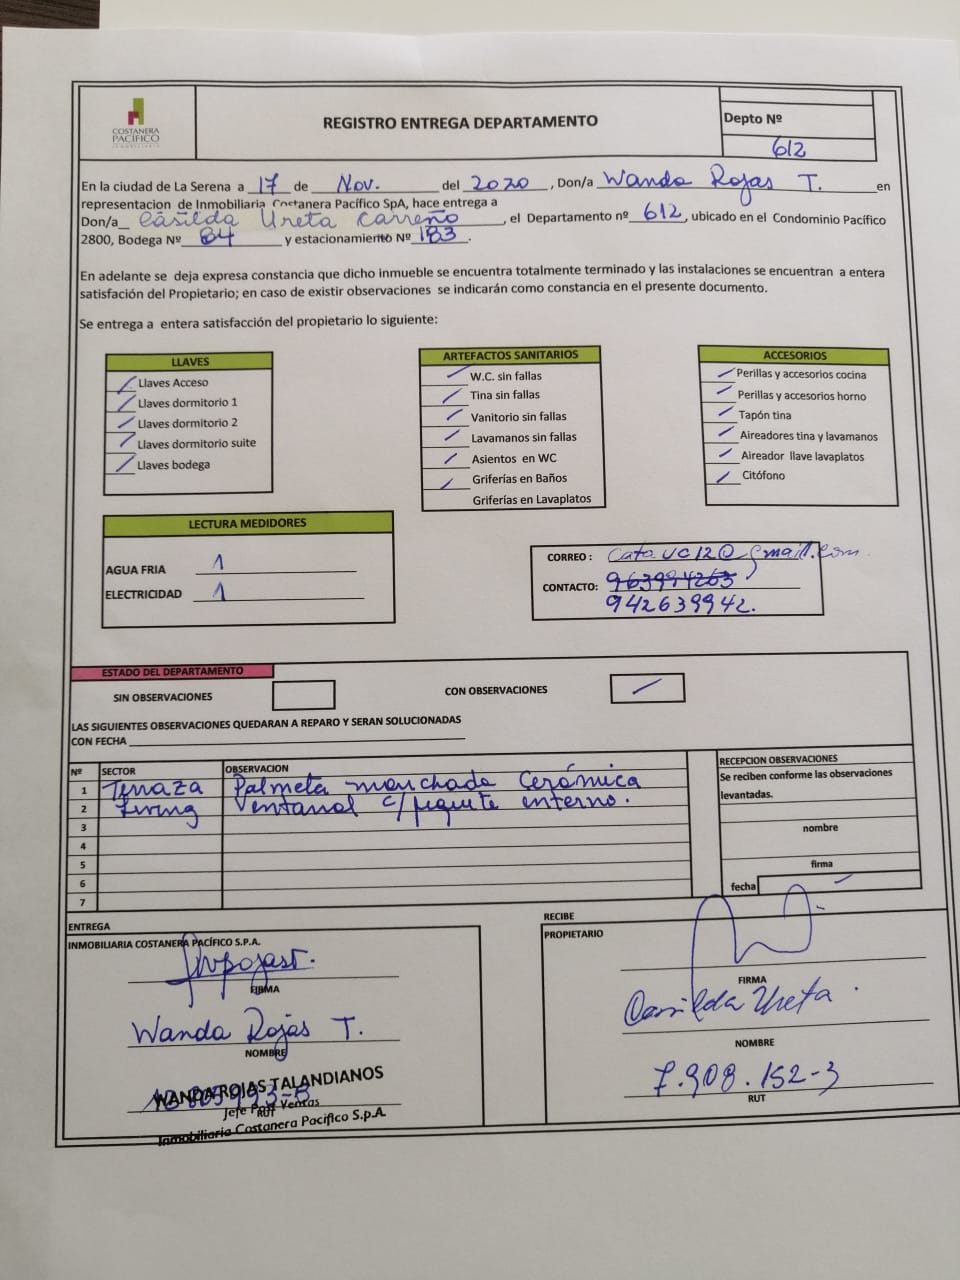 COSTANERA
PACÍFICO
INMOBILIARIA
REGISTRO ENTREGA DEPARTAMENTO
Depto Nº
612
En la ciudad de La Serena a 17 de Nov. del 2020, Don/a Wanda Rojas T. en
representacion de Inmobiliaria Costanera Pacífico SpA, hace entrega a
Don/a Casilda Ureta Carreño, el Departamento nº 612, ubicado en el Condominio Pacífico
2800, Bodega Nº 84 y estacionamiento Nº 183.
En adelante se deja expresa constancia que dicho inmueble se encuentra totalmente terminado y las instalaciones se encuentran a entera
satisfación del Propietario; en caso de existir observaciones se indicarán como constancia en el presente documento.
Se entrega a entera satisfacción del propietario lo siguiente:
LLAVES
Llaves Acceso
Llaves dormitorio 1
Llaves dormitorio 2
Llaves dormitorio suite
Llaves bodega
ARTEFACTOS SANITARIOS
W.C. sin fallas
Tina sin fallas
Vanitorio sin fallas
Lavamanos sin fallas
Asientos en WC
Griferías en Baños
Griferías en Lavaplatos
ACCESORIOS
Perillas y accesorios cocina
Perillas y accesorios horno
Tapón tina
Aireadores tina y lavamanos
Aireador llave lavaplatos
Citófono
LECTURA MEDIDORES
AGUA FRIA 1
ELECTRICIDAD 1
CORREO : cata.uc120@gmail.com
CONTACTO: 963994263
942639942.
ESTADO DEL DEPARTAMENTO
SIN OBSERVACIONES
CON OBSERVACIONES
LAS SIGUIENTES OBSERVACIONES QUEDARAN A REPARO Y SERAN SOLUCIONADAS
CON FECHA
Nº SECTOR OBSERVACION
1 Terraza Palmeta manchada Cerámica
2 Living Ventanal c/piquete interno.
3
4
5
6
7
RECEPCION OBSERVACIONES
Se reciben conforme las observaciones
levantadas.
nombre
firma
fecha
ENTREGA
INMOBILIARIA COSTANERA PACÍFICO S.P.A.
FIRMA
Wanda Rojas T.
NOMBRE
WANDA ROJAS TALANDIANOS
Jefe Post Ventas
RUT
Inmobiliaria Costanera Pacifico S.p.A.
RECIBE
PROPIETARIO
FIRMA
Casilda Ureta.
NOMBRE
7.908.152-3
RUT